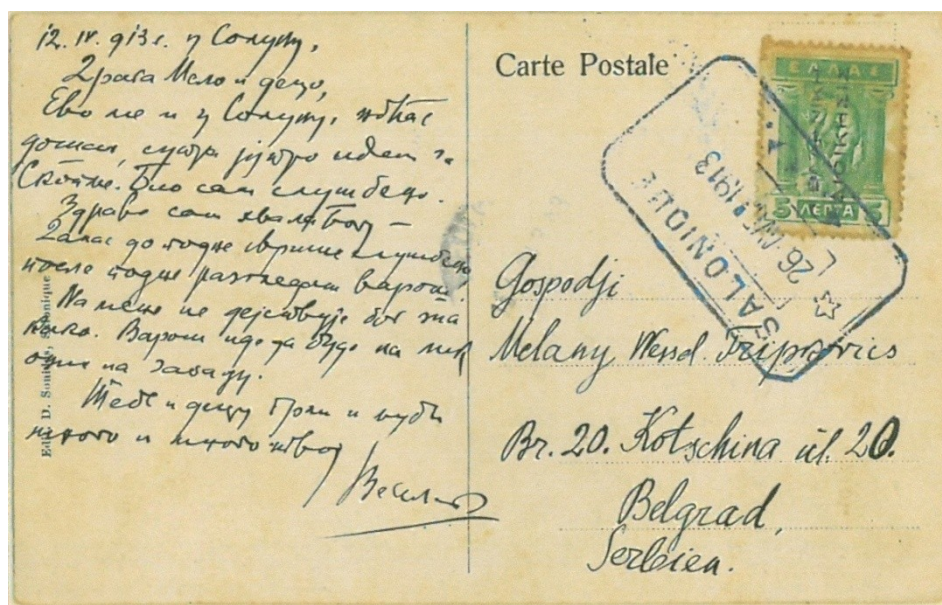 12. IV. 913 г. у Солуну,
Драга Мело и децо,
Ево ме и у Солуну, ноћас
дошао, сутра јутро идем за
Скопље. Био сам службено.
Здраво сам хвала Богу –
Данас до подне службено
после подне разгледам варош.
На мене не дејствује бог зна
како. Варош иде да буде на
они на Западу.
Тебе и децу грли и љуби
много и много твој
Веселин
Edit. D. Salonique
Carte Postale
ΕΛΛΑΣ
5 ΛΕΠΤΑ 5
SALONIQUE
26 1913
Gospodji
Melany Wessel. Tripkovics
Br. 20. Kotschina ul. 20.
Belgrad,
Serbien.